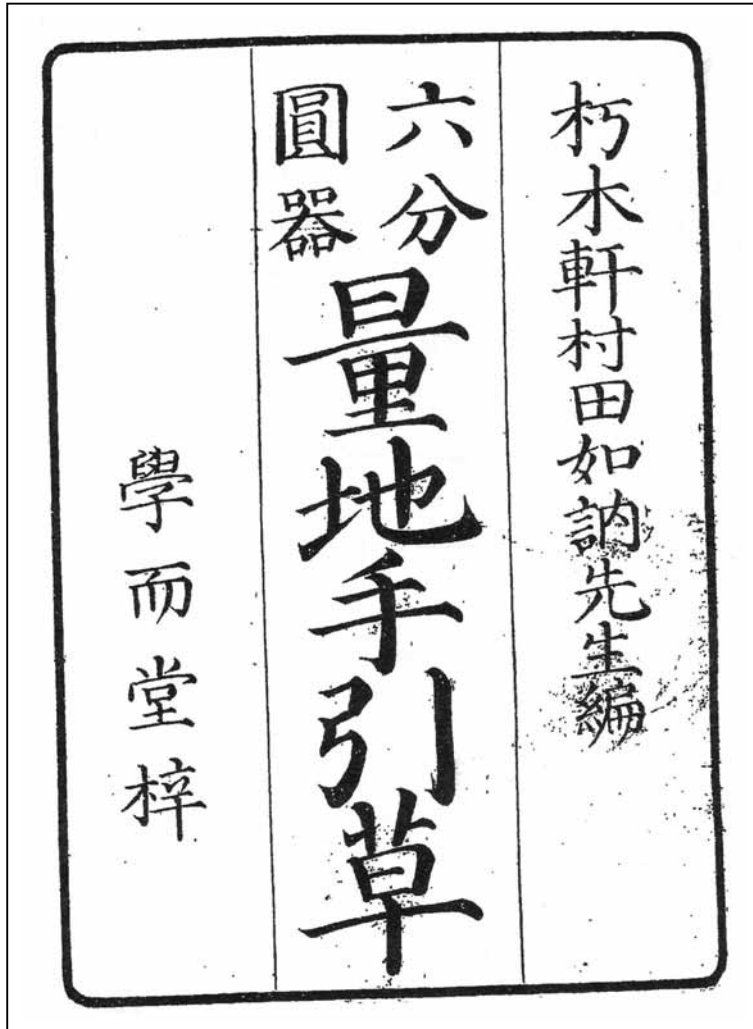 朽木軒村田如訥先生編
六分
圓器
量地手引草
學而堂梓